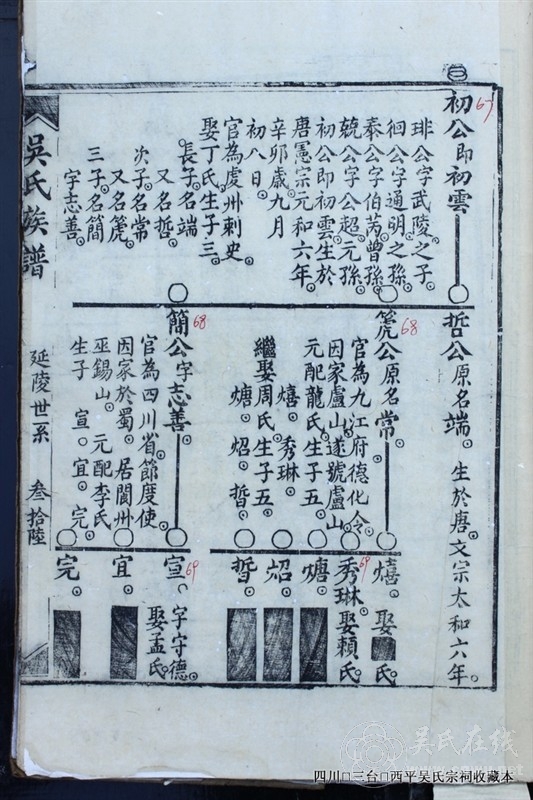 67
初公即初雲
琲公字武陵之子
徊公字通明之孫
泰公字伯芮曾孫
兢公字公超元孫
初公即初雲生於
唐憲宗元和六年
辛卯歲九月
初八日
官為虔州刺史
娶丁氏生子三
長子名端
又名哲
次子名常
又名箎
三子名簡
字志善
哲公原名端 生於唐文宗太和六年
68
箎公原名常
官為九江府德化令
因家廬山遂號廬山
元配龍氏生子五
熺 秀琳
繼娶周氏生子五
熺 秀琳
煻 炤 晢
68
簡公字志善
官為四川省節度使
因家於蜀居閬州
巫錫山 元配李氏
生子 宣 宜 完
熺 娶 氏
69
秀琳 娶賴氏
煻
炤
晢
69
宣 字守德
娶孟氏
宜
完
吳氏族譜
延陵世系
叁拾陸
吴氏在线
四川□三台□西平吴氏宗祠收藏本